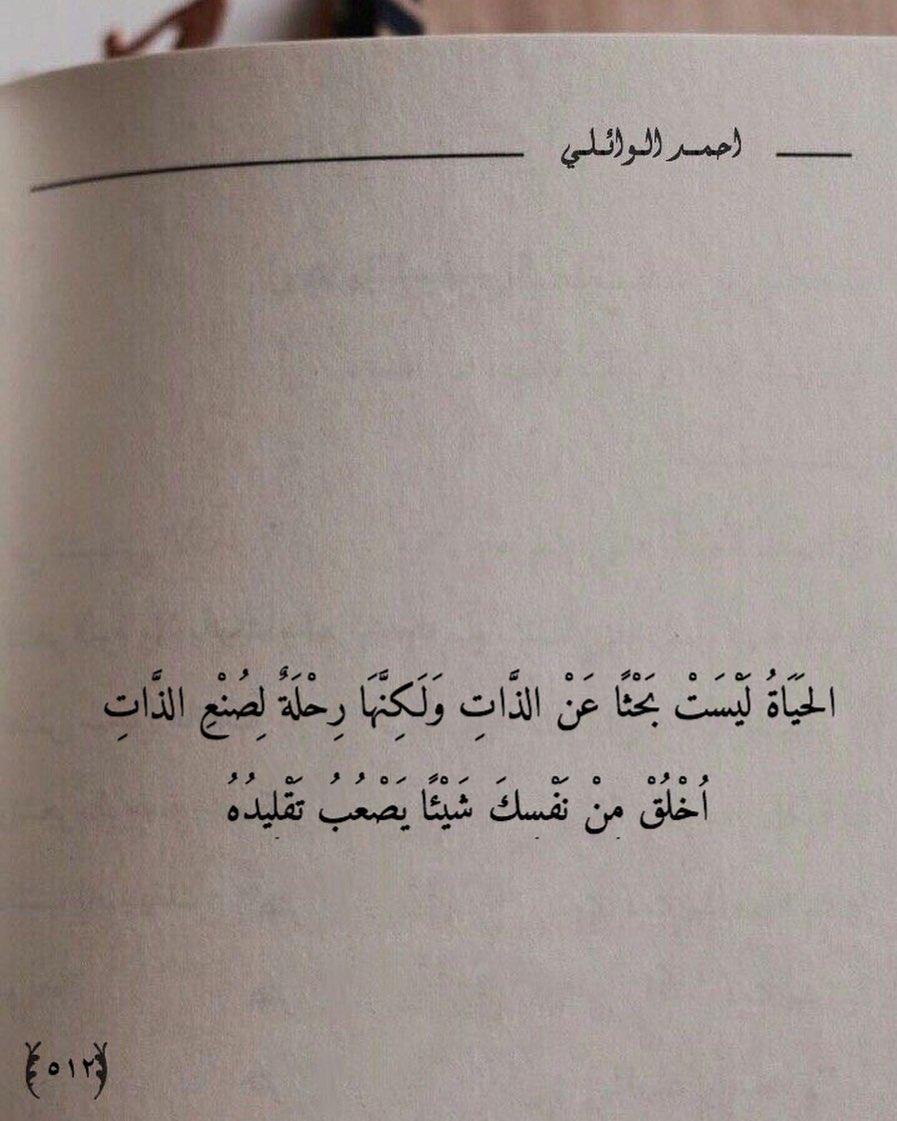 احمد الوائلي
الحَيَاةُ لَيْسَتْ بَحْثًا عَنْ الذَّاتِ وَلَكِنَّهَا رِحْلَةٌ لِصُنْعِ الذَّاتِ
اُخْلُقْ مِنْ نَفْسِكَ شَيْئًا يَصْعُبُ تَقْلِيدُهُ
٥١٢